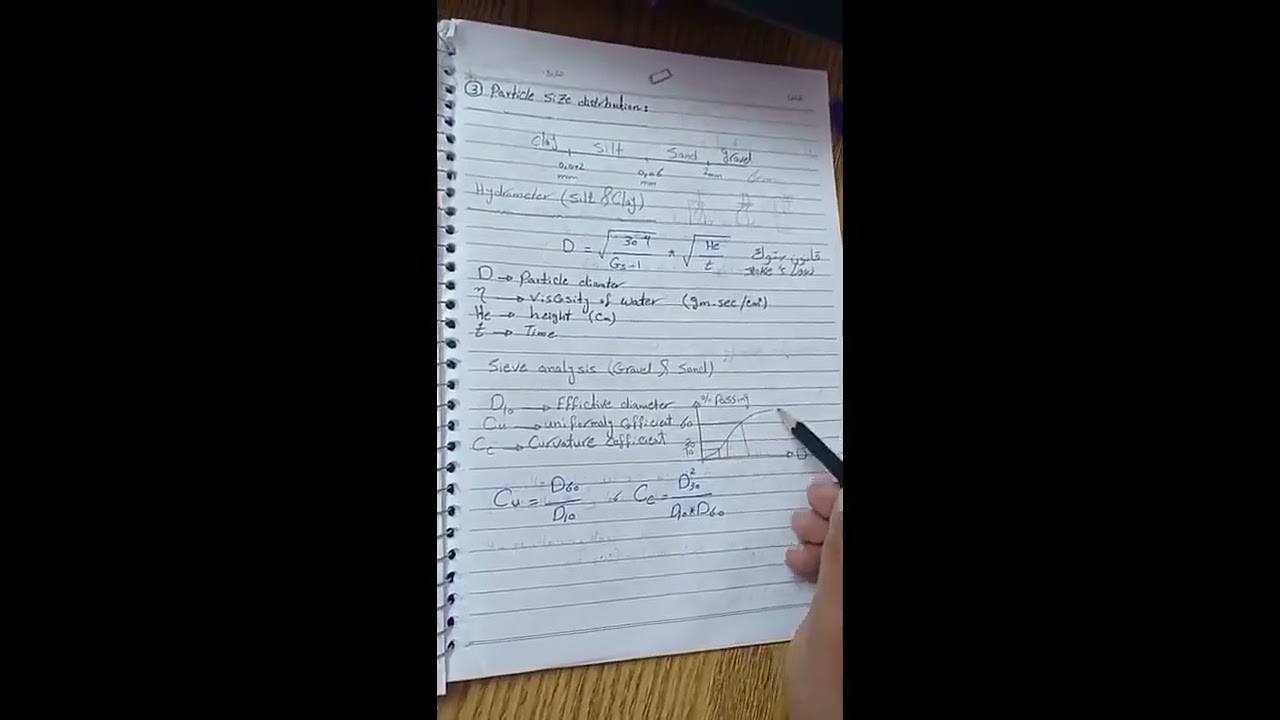 ③ Particle size distribution:
Clay Silt Sand gravel
0,002 mm 0,06 mm 2mm 6cm
Hydrometer (Silt & Clay)
D = √(30 η / Gs-1) * √(He / t) قانون ستوك
stoke's Law
D → Particle diamter
η → Viscosity of water (gm.sec/cm²)
He → height (cm)
t → Time
Sieve analysis (Gravel & Sand)
D10 → Effictive diameter
Cu → uniformaly cofficient
Cc → Curvature cofficient
% Passing
60
30
10
D
Cu = D60 / D10 , Cc = D30² / D10 * D60